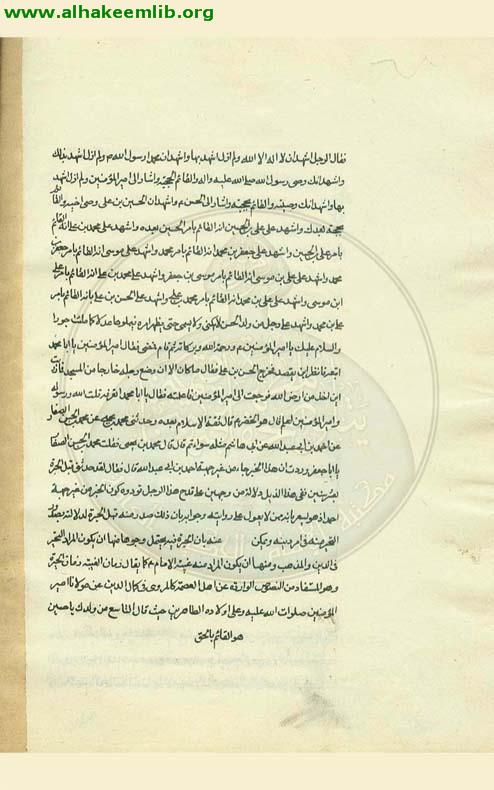 www.alhakeemlib.org
فقال الرجل اشهد ان لا اله الا الله ولم ازل اشهد بها واشهد ان محمدا رسول الله ص ولم ازل اشهد بذلك
واشهد انك وصي رسول الله صلى الله عليه واله والقائم بحجته واشار الى امير المؤمنين ولم ازل اشهد
بها واشهد انك وصيه والقائم بحجته واشار الى الحسن ع واشهد ان الحسين بن علي وصي اخيه والقائم
بحجته بعدك واشهد على علي بن الحسين انه القائم بامر الحسين بعده واشهد على محمد بن علي انه القائم
بامر علي بن الحسين واشهد على جعفر بن محمد انه القائم بامر محمد واشهد على موسى انه القائم بامر جعفر بن
محمد واشهد على علي بن موسى انه القائم بامر موسى بن جعفر واشهد على محمد بن علي انه القائم بامر علي
ابن موسى واشهد على علي بن محمد انه القائم بامر محمد بن علي واشهد على الحسن بن علي بانه القائم بامر
علي بن محمد واشهد على رجل من ولد الحسن لا يكنى ولا يسمى حتى يظهر امره فيملؤها عدلا كما ملئت جورا
والسلام عليك يا امير المؤمنين ع ورحمة الله وبركاته ثم قام فمضى فقال امير المؤمنين يا ابا محمد
اتبعه فانظر اين يقصد فخرج الحسن بن علي فقال ما كان الا ان وضع رجله خارجا من المسجد فما دريت
اين اخذ من ارض الله فرجعت الى امير المؤمنين فاعلمته فقال يا ابا محمد اتعرفه قلت الله ورسوله
وامير المؤمنين اعلم قال هو الخضر ع قال ثقة الاسلام بعده وحدثني محمد بن يحيى عن محمد بن الحسن الصفار
عن احمد بن ابي عبد الله عن ابي هاشم مثله سواء ثم قال قال محمد بن يحيى فقلت لمحمد بن الحسن الصفار
يا ابا جعفر وددت ان هذا الخبر جاء من غير جهة احمد بن ابي عبد الله قال فقال لقد حدثني قبل الحيرة
بعشر سنين ففي هذا الذيل دلالة من وجهين على قدح هذا الرجل تودده كون الخبر من غير جهة
احمد اذ هو يشعر بانه ممن لا يعول على روايته وجوابه بان ذلك صدر منه قبل الحيرة لدلالته
في امر دينه ويمكن عنه بان الحيرة فيه يحتمل وجوها منها ان يكون المراد التحير
في الدين والمذهب ومنها ان يكون المراد منه غيبة الامام ع كما يقال زمان الغيبة زمان الحيرة
وهو المستفاد من النصوص الواردة عن اهل العصمة كالمروي في كمال الدين عن مولانا امير
المؤمنين صلوات الله عليه وعلى اولاده الطاهرين حيث قال التاسع من ولدك يا حسين
هو القائم بالحق